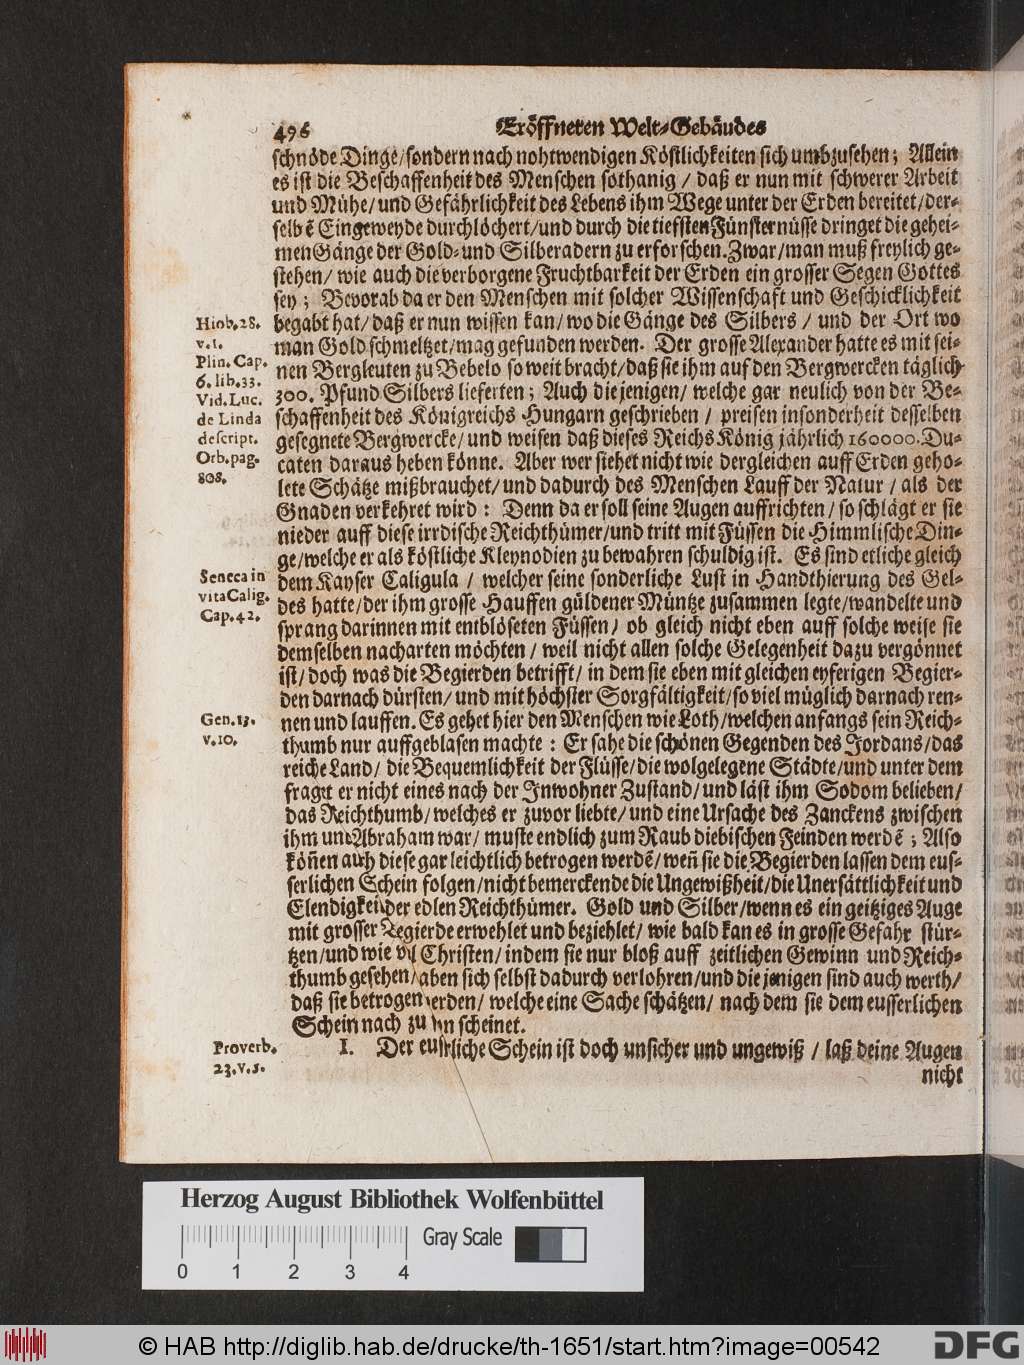 496 Eröffneten Welt-Gebäudes
schnöde Dinge/sondern nach nohtwendigen Köstlichkeiten sich umbzusehen; Allein
es ist die Beschaffenheit des Menschen sothanig / daß er nun mit schwerer Arbeit
und Mühe/und Gefährlichkeit des Lebens ihm Wege unter der Erden bereitet/der-
selbẽ Eingeweyde durchlöchert/und durch die tiefsten Fünsternüsse dringet die gehei-
men Gänge der Gold- und Silberadern zu erforschen. Zwar/man muß freylich ge-
stehen/ wie auch die verborgene Fruchtbarkeit der Erden ein grosser Segen Gottes
sey; Bevorab da er den Menschen mit solcher Wissenschaft und Geschicklichkeit
begabt hat/daß er nun wissen kan/wo die Gänge des Silbers / und der Ort wo
man Gold schmeltzet/mag gefunden werden. Der grosse Alexander hatte es mit sei-
nen Bergleuten zu Bebelo so weit bracht/daß sie ihm auf den Bergwercken täglich
300. Pfund Silbers lieferten; Auch die jenigen/ welche gar neulich von der Be-
schaffenheit des Königreichs Hungarn geschrieben / preisen insonderheit desselben
gesegnete Bergwercke/und weisen daß dieses Reichs König jährlich 160000. Du-
caten daraus heben könne. Aber wer siehet nicht wie dergleichen auff Erden geho-
lete Schätze mißbrauchet/und dadurch des Menschen Lauff der Natur / als der
Gnaden verkehret wird: Denn da er soll seine Augen auffrichten/so schlägt er sie
nieder auff diese irrdische Reichthümer/und tritt mit Füssen die Himmlische Din-
ge/welche er als köstliche Kleynodien zu bewahren schuldig ist. Es sind etliche gleich
dem Kayser Caligula / welcher seine sonderliche Lust in Handthierung des Gel-
des hatte/der ihm grosse Hauffen güldener Müntze zusammen legte/wandelte und
sprang darinnen mit entblöseten Füssen/ ob gleich nicht eben auff solche weise sie
demselben nacharten möchten / weil nicht allen solche Gelegenheit dazu vergönnet
ist/doch was die Begierden betrifft/ in dem sie eben mit gleichen eyferigen Begier-
den darnach dürsten/und mit höchster Sorgfältigkeit/so viel müglich darnach ren-
nen und lauffen. Es gehet hier den Menschen wie Loth/welchen anfangs sein Reich-
thumb nur auffgeblasen machte: Er sahe die schönen Gegenden des Jordans/das
reiche Land/ die Bequemlichkeit der Flüsse/die wolgelegene Städte/und unter dem
fraget er nicht eines nach der Inwohner Zustand/und läst ihm Sodom belieben/
das Reichthumb/welches er zuvor liebte/und eine Ursache des Zanckens zwischen
ihm und Abraham war/ muste endlich zum Raub diebischen Feinden werdẽ; Also
köñen auch diese gar leichtlich betrogen werdẽ/weñ sie die Begierden lassen dem eus-
serlichen Schein folgen/nicht bemerckende die Ungewißheit/die Unersättlichkeit und
Elendigkeit der edlen Reichthümer. Gold und Silber/wenn es ein geitziges Auge
mit grosser Begierde erwehlet und beziehlet/ wie bald kan es in grosse Gefahr stür-
tzen/und wie viel Christen/indem sie nur bloß auff zeitlichen Gewinn und Reich-
thumb gesehen/ haben sich selbst dadurch verlohren/und die jenigen sind auch werth/
daß sie betrogen werden/ welche eine Sache schätzen/ nach dem sie dem eusserlichen
Schein nach zu scheinet.
I. Der eusserliche Schein ist doch unsicher und ungewiß / laß deine Augen
nicht
Hiob. 28.
v. 1.
Plin. Cap.
6. lib. 33.
Vid. Luc.
de Linda
descript.
Orb. pag.
808.
Seneca in
vita Calig.
Cap. 42.
Gen. 13.
v. 10.
Proverb.
23. v. 5.
Herzog August Bibliothek Wolfenbüttel
Gray Scale
0 1 2 3 4
© HAB http://diglib.hab.de/drucke/th-1651/start.htm?image=00542
DFG